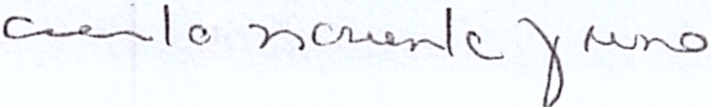 ciento noventa y uno